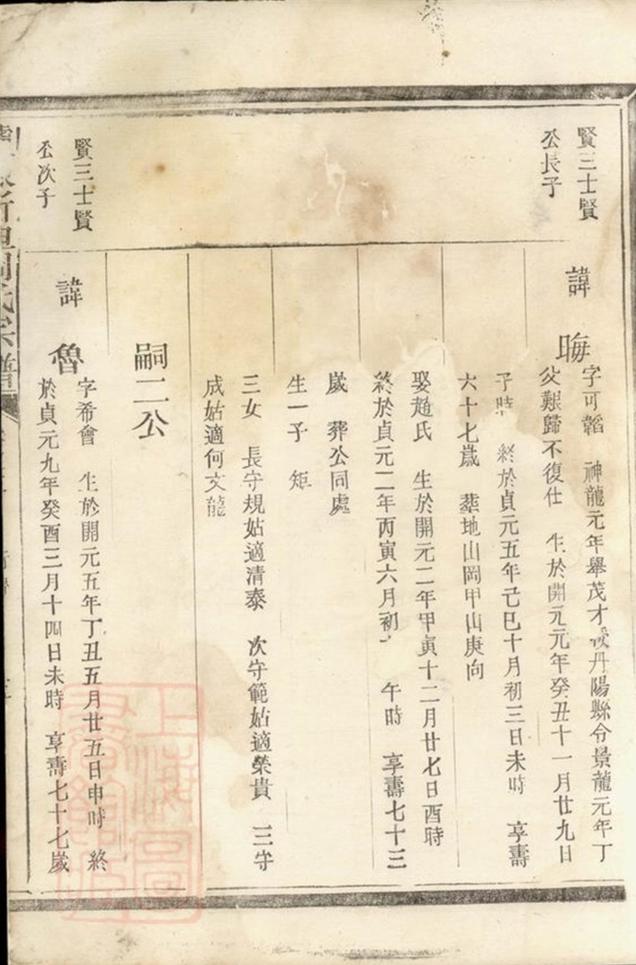 賢三士賢
公長子
諱晦
字可韜　神龍元年舉茂才授丹陽縣令景龍元年丁
父艱歸不復仕　生於開元元年癸丑十一月廿九日
子時　終於貞元五年己巳十月初三日未時　享壽
六十七歲　葬地山岡甲山庚向
娶趙氏　生於開元二年甲寅十二月廿七日酉時
終於貞元二年丙寅六月初　午時　享壽七十三
歲　葬公同處
生一子　矩
三女　長守規姑適清泰　次守範姑適榮貴　三守
成姑適何文龍
嗣二公
賢三士賢
公次子
諱魯
字希會　生於開元五年丁丑五月廿五日申時　終
於貞元九年癸酉三月十四日未時　享壽七十七歲
周氏宗譜
上海圖書館藏